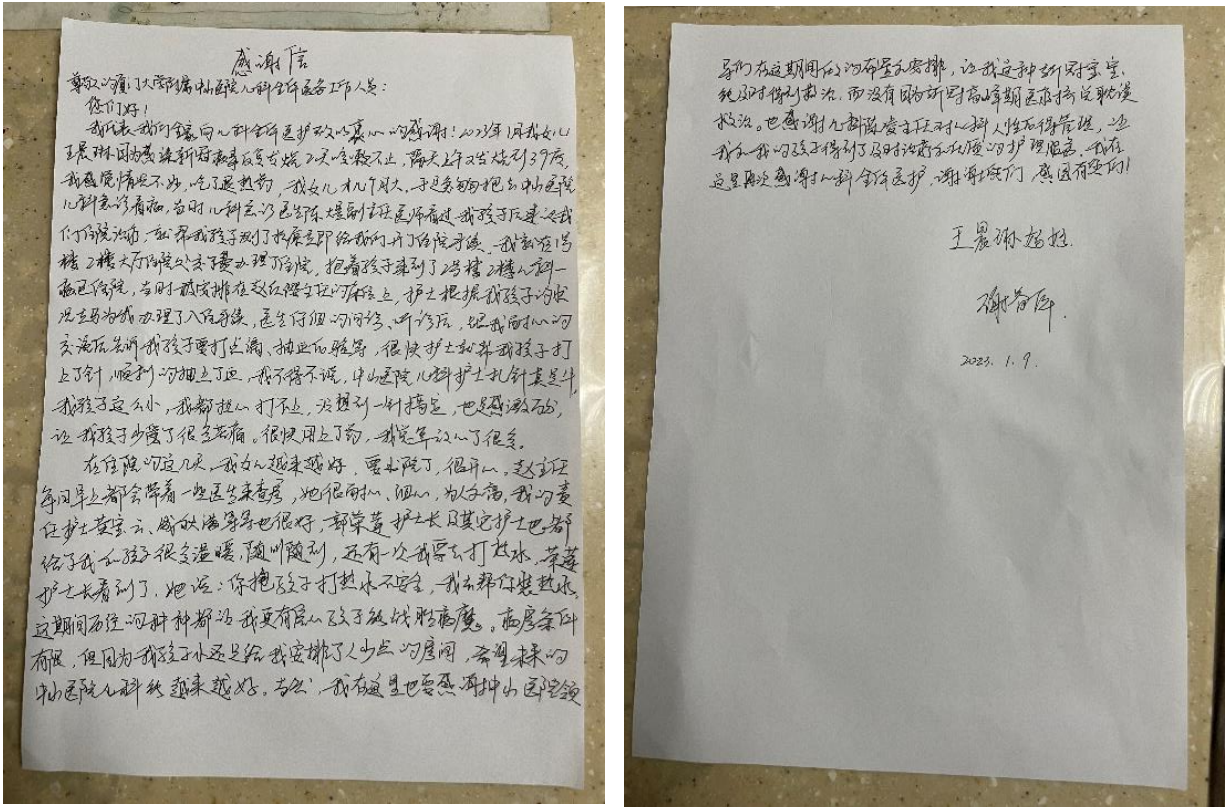 感谢信
尊敬的厦门大学附属中山医院儿科全体医务工作人员：
您们好！
我代表我们全家向儿科全体医护致以衷心的感谢！2023年1月我女儿
王晨琳因为感染新冠病毒反复发烧2天咳嗽不止，隔天上午又发烧到39度，
我感觉情况不妙，吃了退热药，我女儿才几个月大，于是匆匆抱去中山医院
儿科急诊看病，当时儿科急诊医生陈大星副主任医师看过我孩子后建议我
们住院治疗，就帮我孩子测了抗原立即给我们开了住院手续，我就在1号
楼2楼大厅住院处交了费办理了住院，抱着孩子来到了2号楼2楼儿科一
病区住院，当时被安排在赵主任的病床上，护士根据我孩子的状
况立马为我办理了入住手续，医生仔细的问诊、听诊后，跟我耐心的
交流后告诉我孩子要打点滴、抽血化验等，很快护士就帮我孩子打
上了针，顺利的抽上了血，我不得不说，中山医院儿科护士扎针真是牛，
我孩子这么小，我都担心打不上，没想到一针搞定，也是感激万分，
让我孩子少受了很多苦痛。很快用上了药，我完算放心了很多。
在住院的这几天，我女儿越来越好，要出院了，很开心。赵主任
每间早上都会带着一些医生来查房，她很耐心、细心，为人又高，我的责
任护士黄宝云、戚秋满等等也很好，郭荣莲护士长及其它护士也都
给了我和孩子很多温暖，随叫随到，还有一次我要去打热水，荣莲
护士长看到了，她说：你抱孩子打热水不安全，我去帮你装热水。
这期间历经的种种都让我更有信心孩子能战胜病魔。病房条件
有限，但因为我孩子小还是给我安排了人少点的房间，希望未来的
中山医院儿科能越来越好。当然，我在这里也要感谢中山医院领
导们在这期间做的布置和安排，让我这种新冠宝宝
能及时得到救治，而没有因为新冠高峰期医疗挤兑耽误
救治。也感谢儿科主任对儿科人性化得管理，让
我和我的孩子得到了及时治疗和优质的护理服务，我在
这里再次感谢儿科全体医护，谢谢你们，感恩有您们！
王晨琳妈妈
2023.1.9.